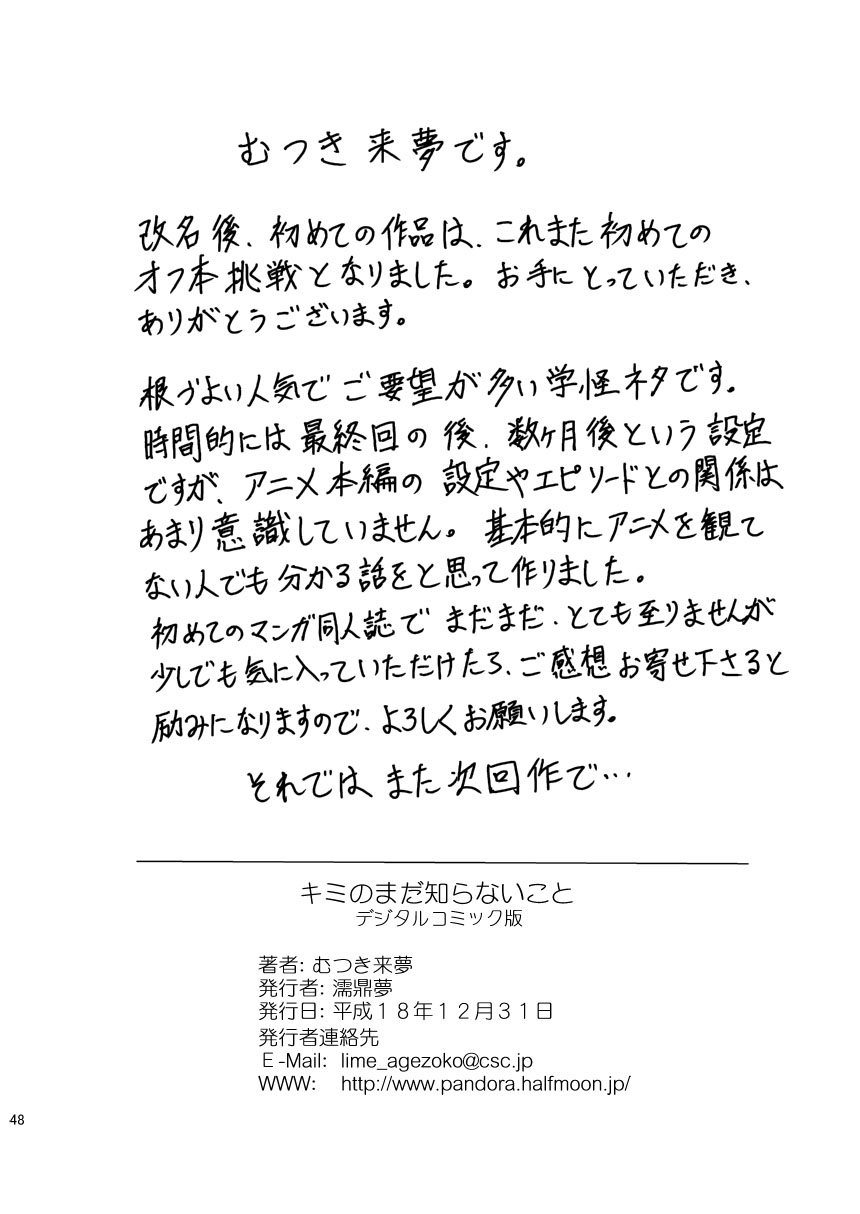 むつき来夢です。
改名後、初めての作品は、これまた初めての
オフ本挑戦となりました。お手にとっていただき、
ありがとうございます。
根づよい人気でご要望が多い学怪ネタです。
時間的には最終回の後、数ヶ月後という設定
ですが、アニメ本編の設定やエピソードとの関係は
あまり意識していません。基本的にアニメを観て
ない人でも分かる話をと思って作りました。
初めてのマンガ同人誌でまだまだ、とても至りませんが
少しでも気に入っていただけたら、ご感想お寄せ下さると
励みになりますので、よろしくお願いします。
それでは、また次回作で…
キミのまだ知らないこと
デジタルコミック版
著者: むつき来夢
発行者: 濡鼎夢
発行日: 平成１８年１２月３１日
発行者連絡先
Ｅ-Mail: lime_agezoko@csc.jp
WWW: http://www.pandora.halfmoon.jp/
48